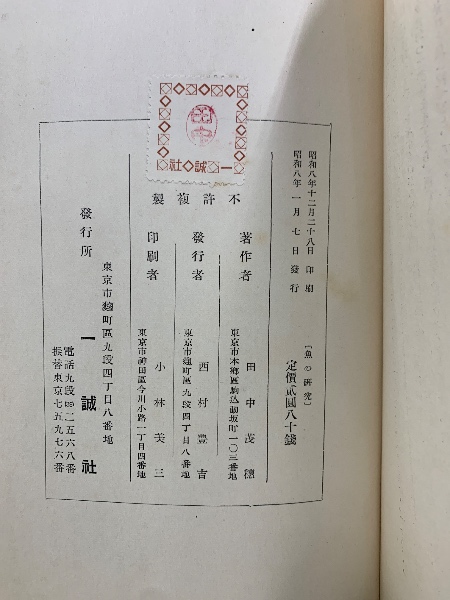 昭和八年十二月二十八日印刷
昭和八年一月七日發行
〔魚の研究〕
定價貳圓八十錢
不許複製
著作者
東京市本鄕區駒込動坂町一〇三番地
田中茂穗
發行者
東京市麴町區九段四丁目八番地
西村豊吉
印刷者
東京市神田區今川小路一丁目四番地
小林美三
發行所
東京市麴町區九段四丁目八番地
一誠社
電話九段四二五六八番
振替東京七五九七六番
一誠社